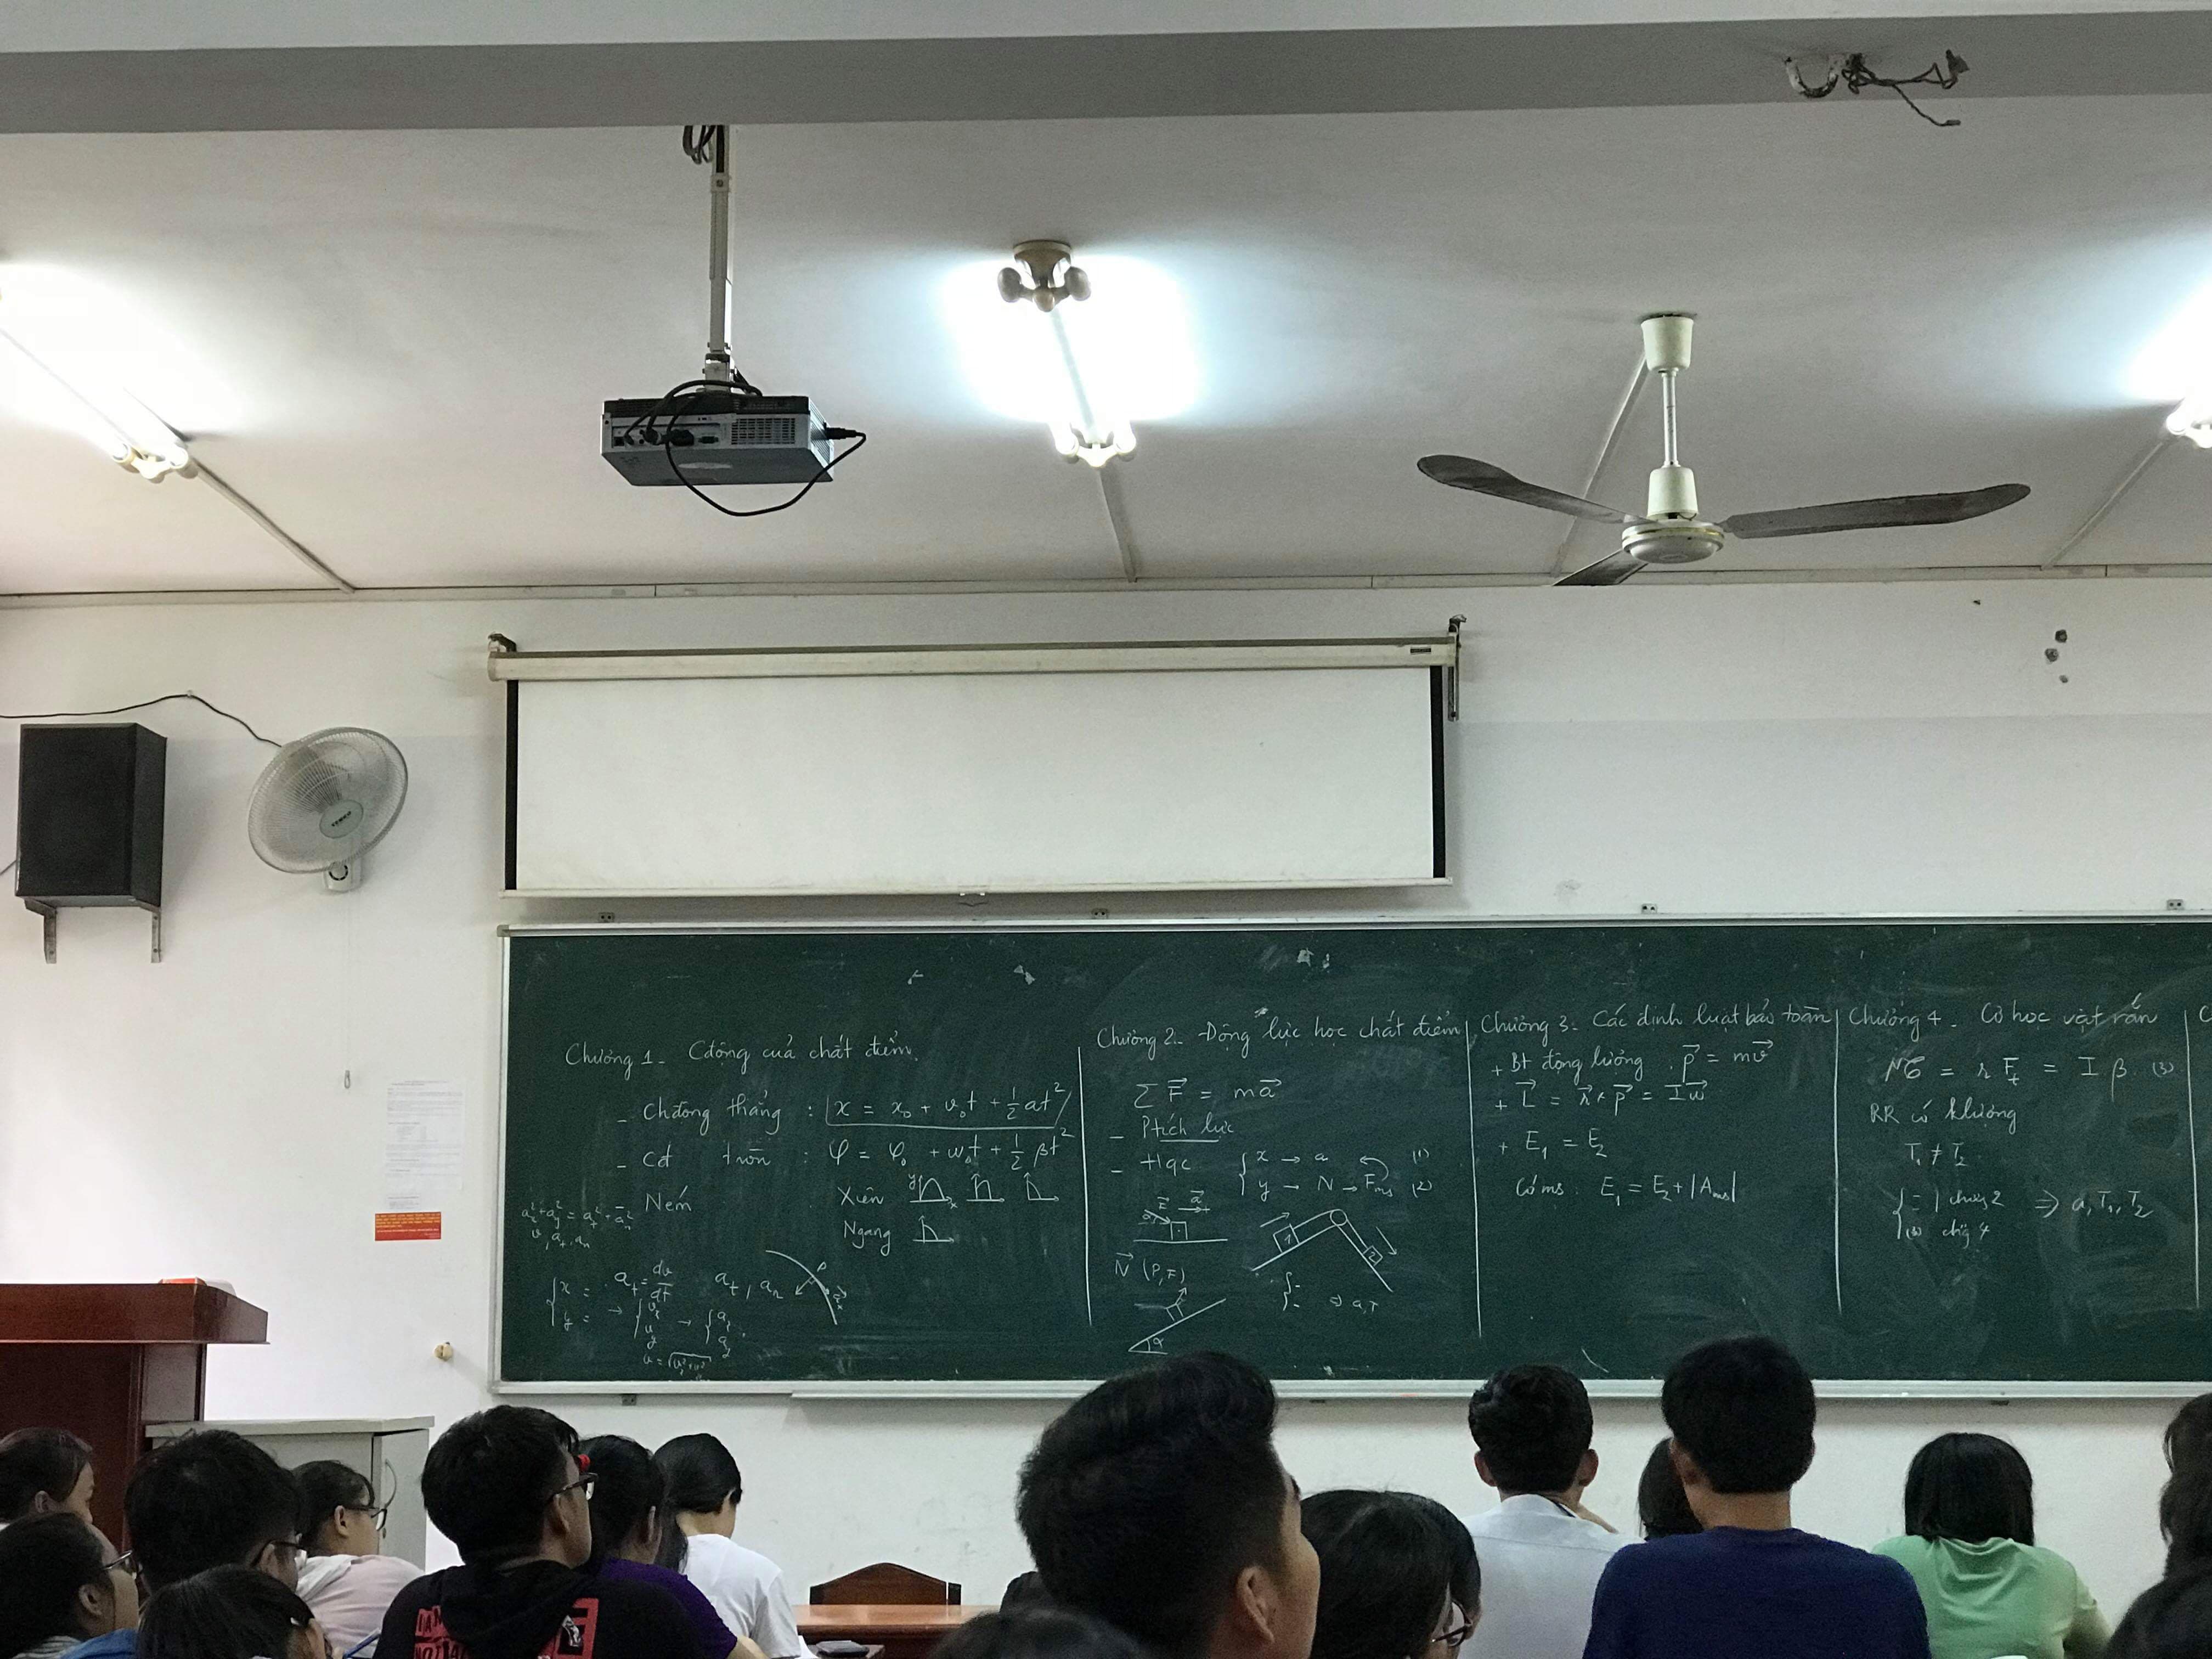 Chương 1_ Cđộng của chất điểm.
_ Chđộng thẳng : x = x₀ + v₀t + ½ at²
_ Cđ tròn : φ = φ₀ + ω₀t + ½ βt²
_ Ném Xiên y x
Ngang
aₜ = dv/dt aₜ, aₙ
{ x =
y = →
Chương 2_ Động lực học chất điểm
∑ F⃗ = ma⃗
_ Ptích lực
_ Hqc { x → a (1)
y → N → Fms (2)
F⃗ a⃗
1 2
N⃗ (P, F)
α
Chương 3_ Các định luật bảo toàn
+ Bt động lượng . p⃗ = mv⃗
+ L⃗ = r⃗ × p⃗ = Iω⃗
+ E₁ = E₂
Có ms : E₁ = E₂ + |Ams|
Chương 4_ Cơ học vật rắn
= r Fₜ = I β (3)
RR có klượng
T₁ ≠ T₂
⇒ a, T₁, T₂